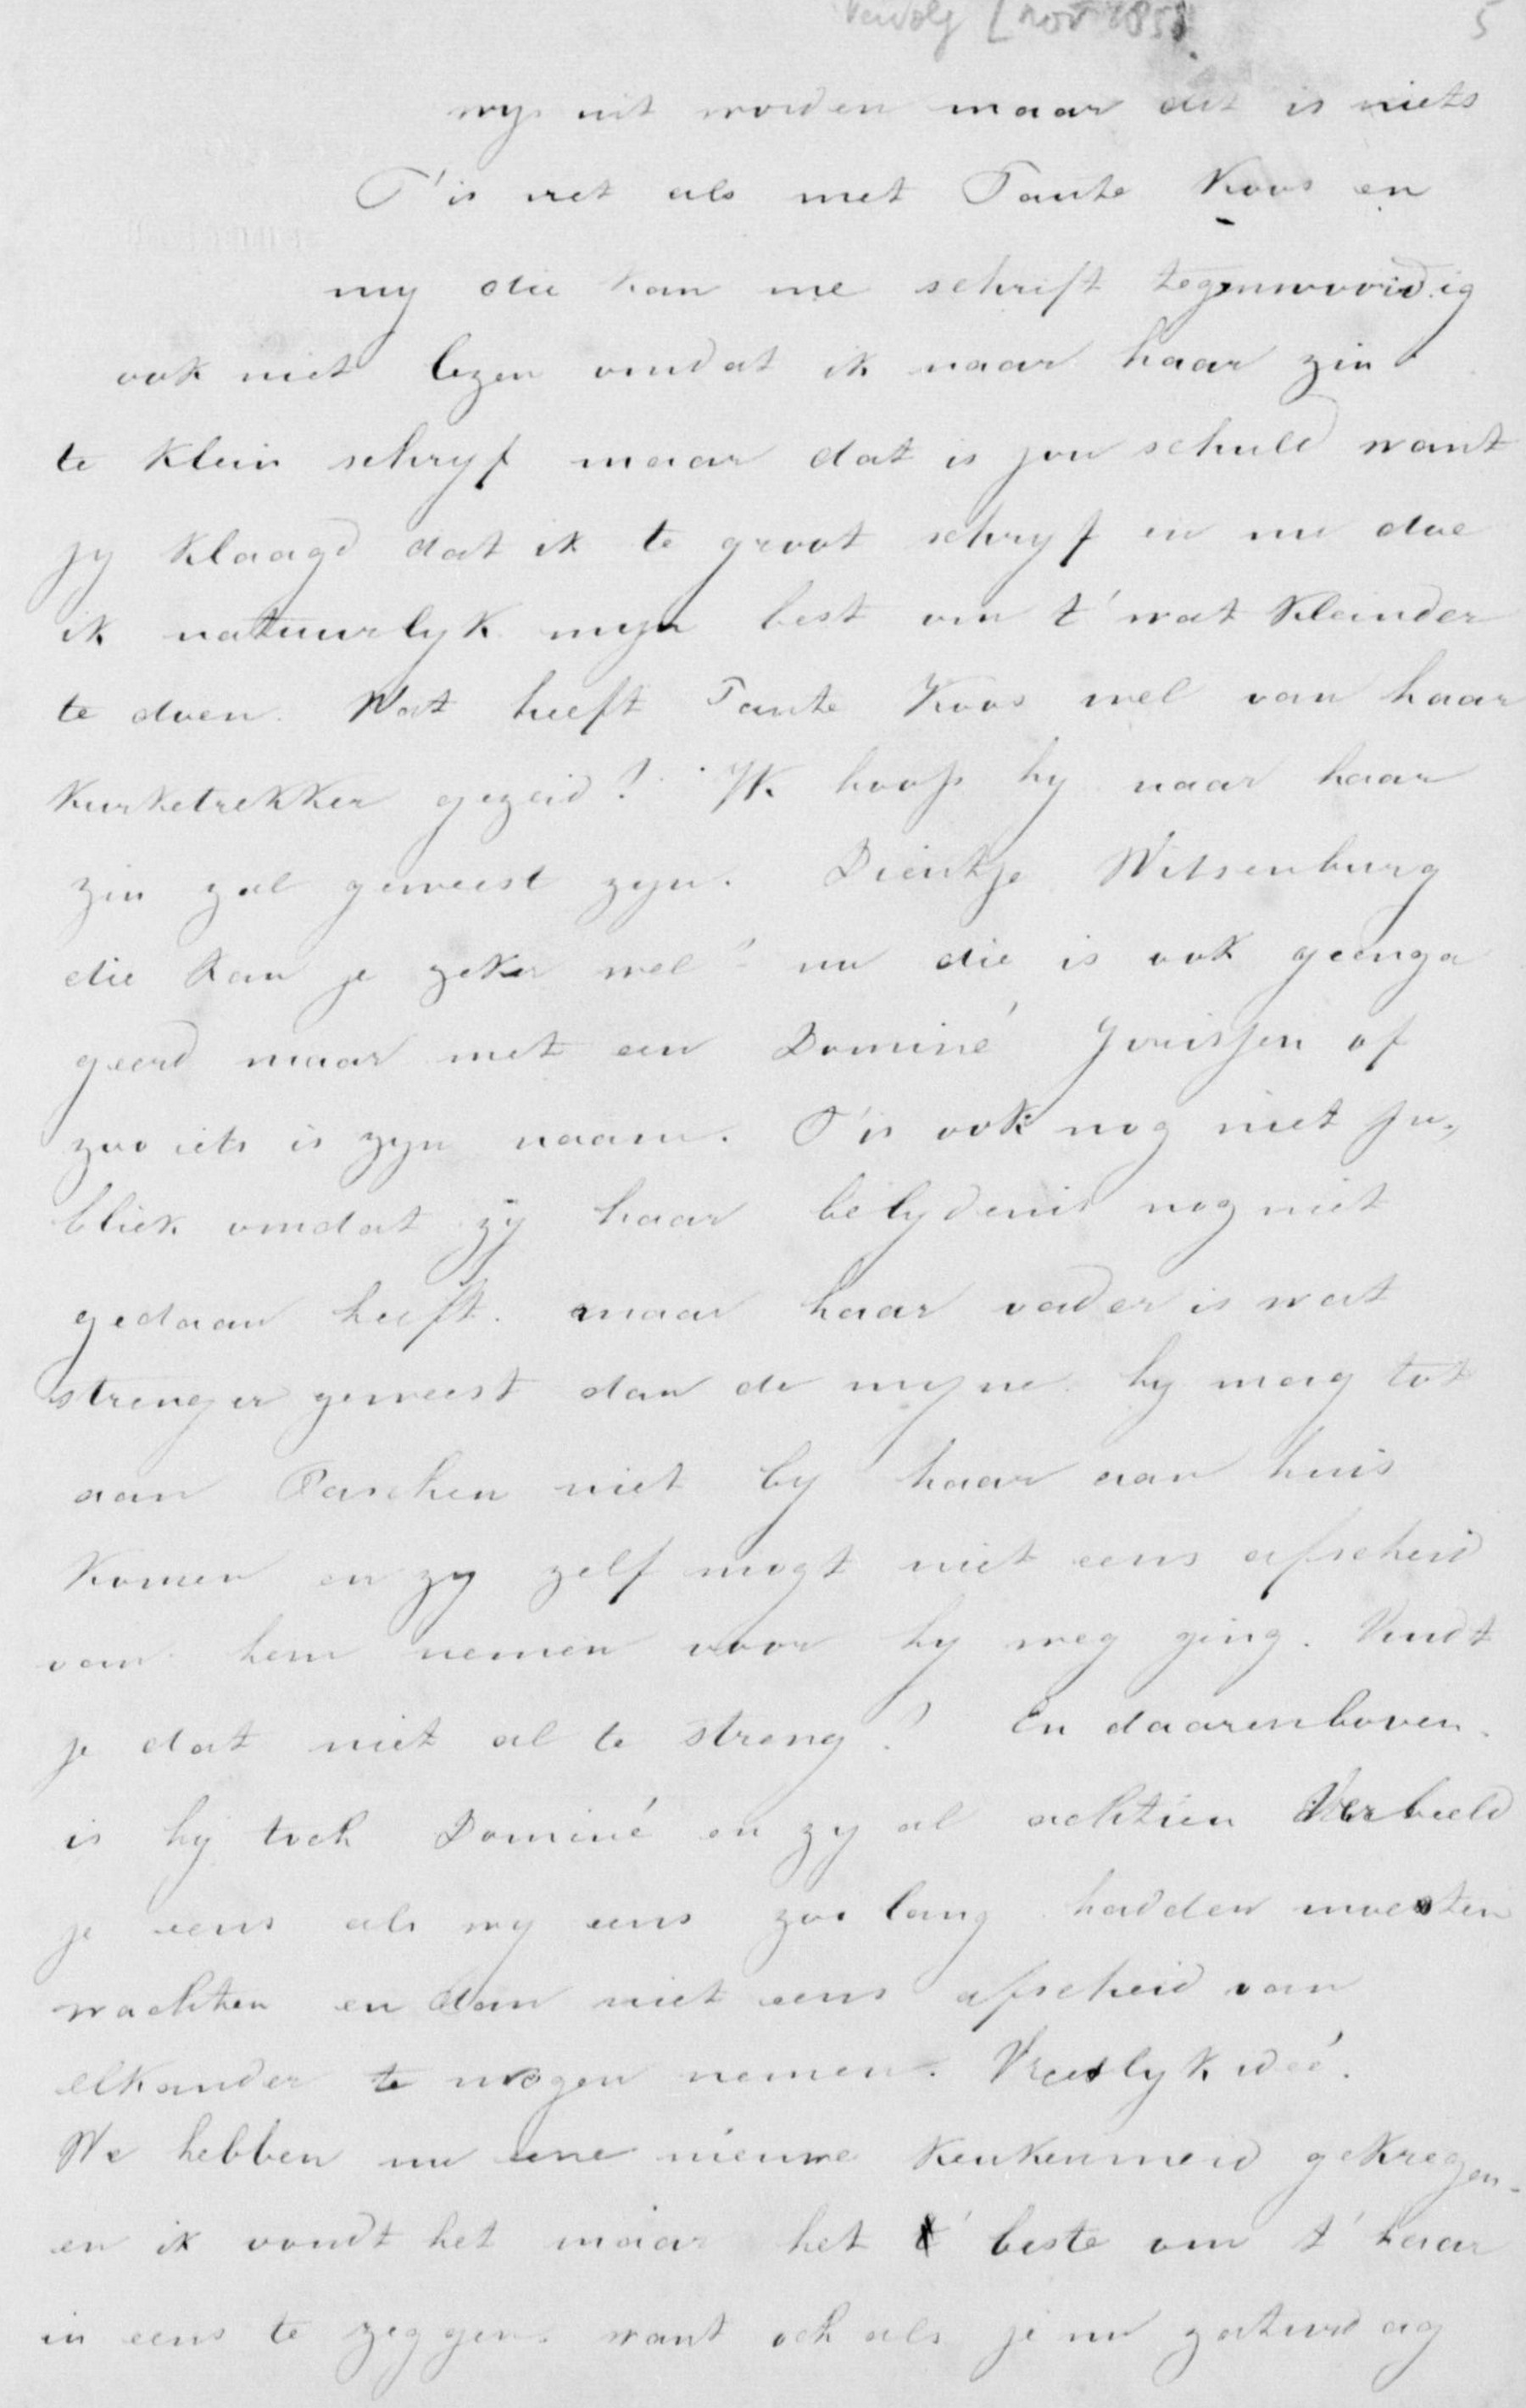 Vervolg [nov 1858 5
wys uit worden maar dit is niets
T'is net als met Tante Koos en
my die kan me schrift tegenwoordig
ook niet lezen omdat ik naar haar zin
te klein schryf maar dat is jou schuld want
jy klaagd dat ik te groot schryf en nu doe
ik natuurlyk myn best om t' wat kleinder
te doen. Wat heeft Tante Koos wel van haar
kurketrekker gezeid? Ik hoop hy naar haar
zin zal geweest zyn. Dientje Witsenburg
die kan je zeker wel? nu die is ook geenga
geerd maar met een Dominé Jorissen of
zoo iets is zyn naam. T'is ook nog niet pu„
bliek omdat zy haar belydenis nog niet
gedaan heeft. maar haar vader is wat
strenger geweest dan de myne. hy mag tot
aan Paschen niet by haar aan huis
komen en zy zelf mogt niet eens afscheid
van hem nemen voor hy weg ging. Vindt
je dat niet al te streng? En daarenboven
is hy toch Dominé en zy al achtien Verbeeld
je eens als wy eens zoo lang hadden moesten
wachten en dan niet eens afscheid van
elkander te mogen nemen. Vreeslyk idee'.
We hebben nu eene nieuwe keukenmeid gekregen
en ik vondt het maar het t' beste om t' haar
in eens te zeggen. want och als je nu zaturdag